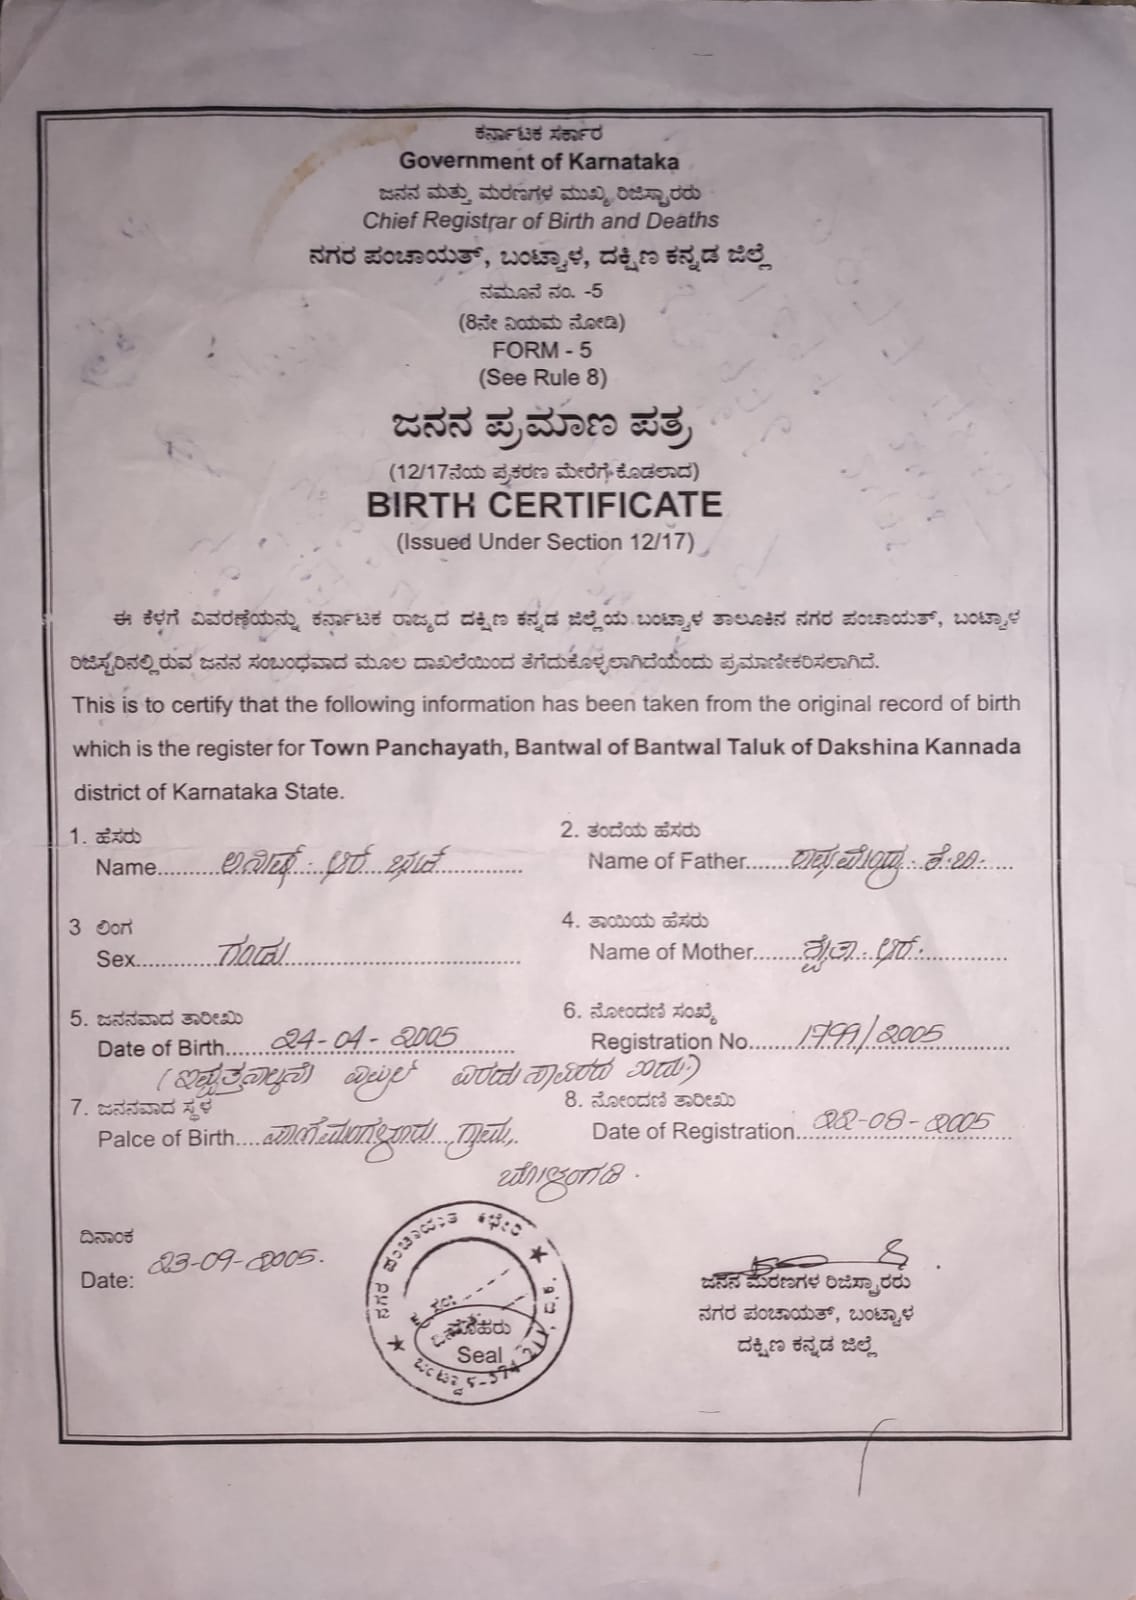 ಕರ್ನಾಟಕ ಸರ್ಕಾರ
Government of Karnataka
ಜನನ ಮತ್ತು ಮರಣಗಳ ಮುಖ್ಯ ರಿಜಿಸ್ಟ್ರಾರರು
Chief Registrar of Birth and Deaths
ನಗರ ಪಂಚಾಯತ್, ಬಂಟ್ವಾಳ, ದಕ್ಷಿಣ ಕನ್ನಡ ಜಿಲ್ಲೆ
ನಮೂನೆ ನಂ. -5
(8ನೇ ನಿಯಮ ನೋಡಿ)
FORM - 5
(See Rule 8)
ಜನನ ಪ್ರಮಾಣ ಪತ್ರ
(12/17ನೆಯ ಪ್ರಕರಣ ಮೇರೆಗೆ ಕೊಡಲಾದ)
BIRTH CERTIFICATE
(Issued Under Section 12/17)
ಈ ಕೆಳಗೆ ವಿವರಣೆಯನ್ನು ಕರ್ನಾಟಕ ರಾಜ್ಯದ ದಕ್ಷಿಣ ಕನ್ನಡ ಜಿಲ್ಲೆಯ ಬಂಟ್ವಾಳ ತಾಲೂಕಿನ ನಗರ ಪಂಚಾಯತ್, ಬಂಟ್ವಾಳ
ರಿಜಿಸ್ಟರಿನಲ್ಲಿರುವ ಜನನ ಸಂಬಂಧವಾದ ಮೂಲ ದಾಖಲೆಯಿಂದ ತೆಗೆದುಕೊಳ್ಳಲಾಗಿದೆಯೆಂದು ಪ್ರಮಾಣೀಕರಿಸಲಾಗಿದೆ.
This is to certify that the following information has been taken from the original record of birth
which is the register for Town Panchayath, Bantwal of Bantwal Taluk of Dakshina Kannada
district of Karnataka State.
1. ಹೆಸರು
Name
2. ತಂದೆಯ ಹೆಸರು
Name of Father ಕೆ.ಬಿ.
3 ಲಿಂಗ
Sex ಗಂಡು
4. ತಾಯಿಯ ಹೆಸರು
Name of Mother
5. ಜನನವಾದ ತಾರೀಖು
Date of Birth 24-04-2005
6. ನೋಂದಣಿ ಸಂಖ್ಯೆ
Registration No 1799/2005
(ಇಪ್ಪತ್ತನಾಲ್ಕನೇ ಎಪ್ರಿಲ್ ಎರಡು ಸಾವಿರದ ಐದು)
7. ಜನನವಾದ ಸ್ಥಳ
Palce of Birth ಪಾಣೆಮಂಗಳೂರು ಗ್ರಾಮ,
ಬೋಳಂಗಡಿ.
8. ನೋಂದಣಿ ತಾರೀಖು
Date of Registration 22-08-2005
ದಿನಾಂಕ
Date: 23-09-2005.
ನಗರ ಪಂಚಾಯತ ಕಛೇರಿ
ಮೊಹರು
Seal
ಜನನ ಮರಣಗಳ ರಿಜಿಸ್ಟ್ರಾರರು
ನಗರ ಪಂಚಾಯತ್, ಬಂಟ್ವಾಳ
ದಕ್ಷಿಣ ಕನ್ನಡ ಜಿಲ್ಲೆ